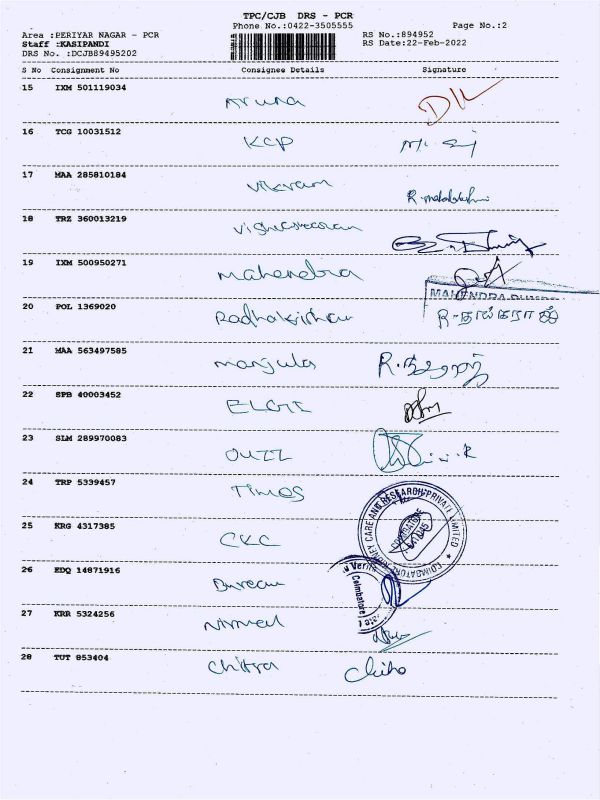 TPC/CJB DRS - PCR
Phone No.:0422-3505555 Page No.:2
Area :PERIYAR NAGAR - PCR RS No.:894952
Staff :KASIPANDI RS Date:22-Feb-2022
DRS No. :DCJB89495202
S No Consignment No Consignee Details Signature
15 IXM 501119034
Aruna
16 TCG 10031512
KCP
17 MAA 285810184
Vikram
R. mahalakshmi
18 TRZ 360013219
19 IXM 500950271
Mahendra
MAHENDRA
20 POL 1369020
Radhakrishan
21 MAA 563497585
Manjula
22 SPB 40003452
ELGI
23 SLM 289970083
OUZZ
24 TRP 5339457
Times
COIMBATORE KIDNEY CARE AND RESEARCH PRIVATE LIMITED
COIMBATORE
25 KRG 4317385
CKC
26 EDQ 14871916
Bureau
Coimbatore
27 KRR 5324256
Nirmal
28 TUT 853404
Chitra